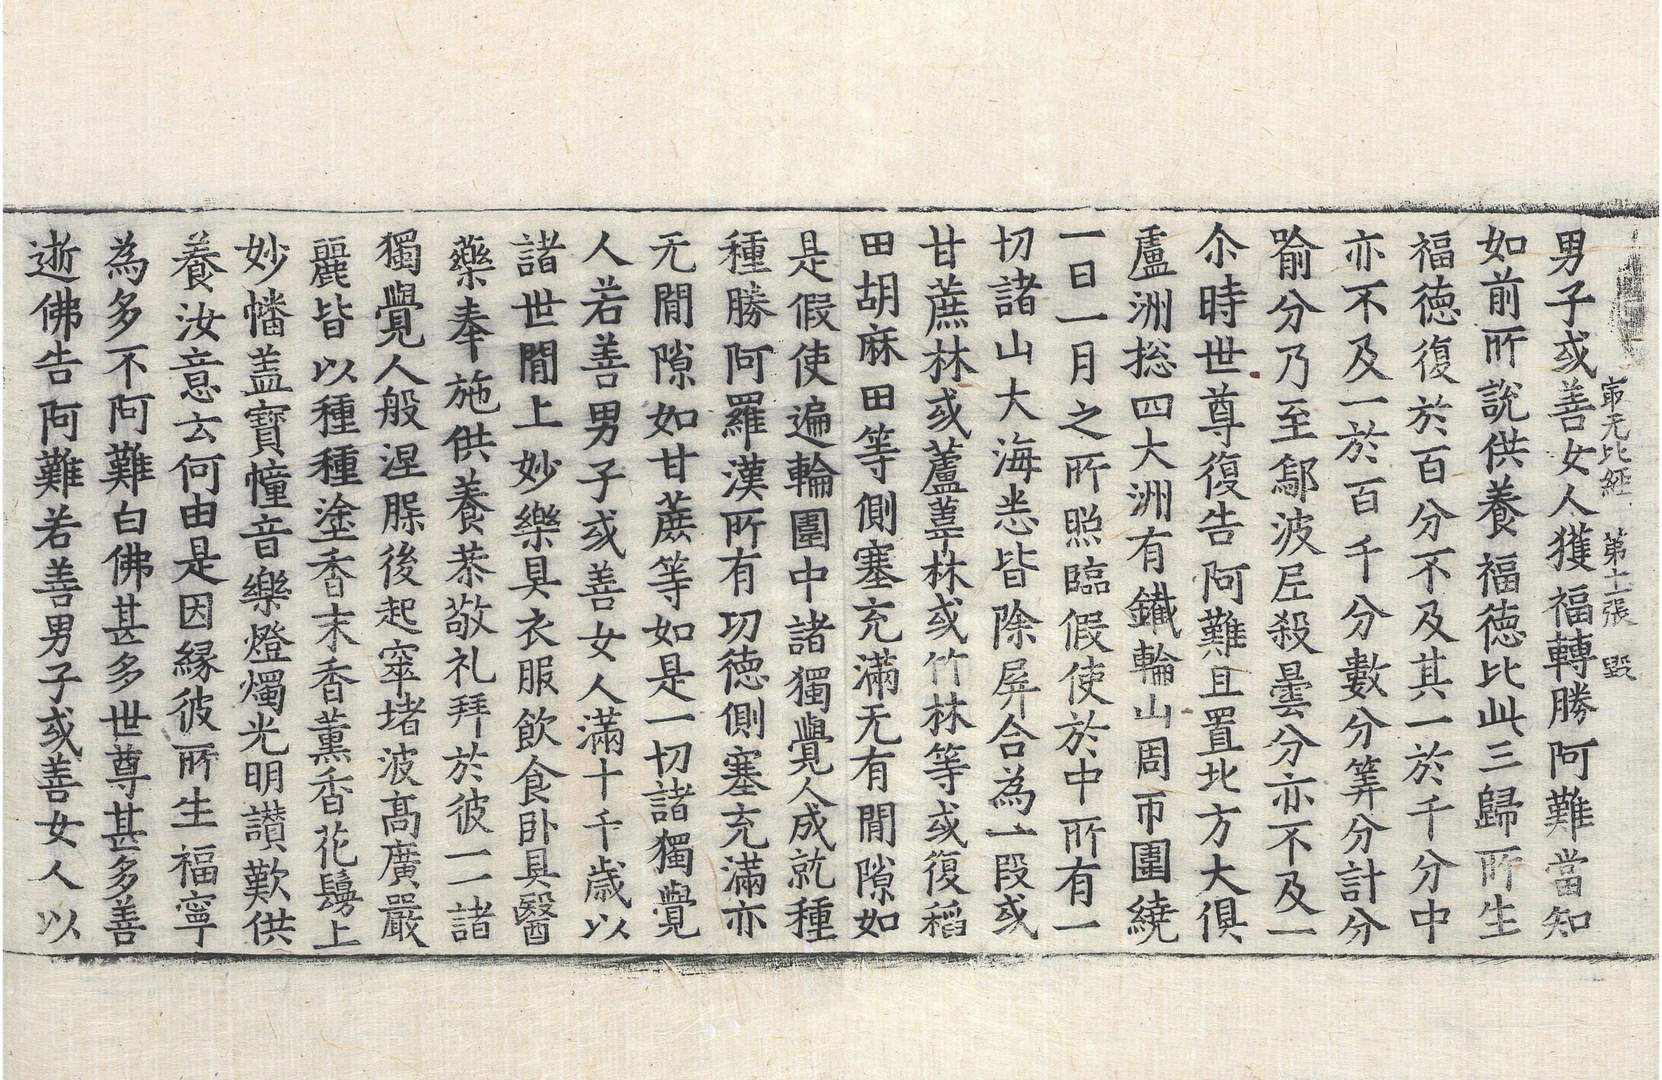 冣无比經　第十一張　毀
男子或善女人獲福轉勝阿難當知
如前所說供養福德比此三歸所生
福德復於百分不及其一於千分中
亦不及一於百千分數分筭分計分
喻分乃至鄔波尼殺曇分亦不及一
尒時世尊復告阿難且置北方大俱
盧洲捴四大洲有鐵輪山周帀圍繞
一日一月之所照臨假使於中所有一
切諸山大海悉皆除屏合為一段或
甘蔗林或蘆葦林或竹林等或復稻
田胡麻田等側塞充滿无有閒隙如
是假使遍輪圍中諸獨覺人成就種
種勝阿羅漢所有功德側塞充滿亦
无閒隙如甘蔗等如是一切諸獨覺
人若善男子或善女人滿十千歲以
諸世閒上妙樂具衣服飲食卧具醫
藥奉施供養恭敬礼拜於彼一一諸
獨覺人般涅槃後起窣堵波高廣嚴
麗皆以種種塗香末香薰香花鬘上
妙幡盖寶幢音樂燈燭光明讚歎供
養汝意云何由是因緣彼所生福寧
為多不阿難白佛甚多世尊甚多善
逝佛告阿難若善男子或善女人以